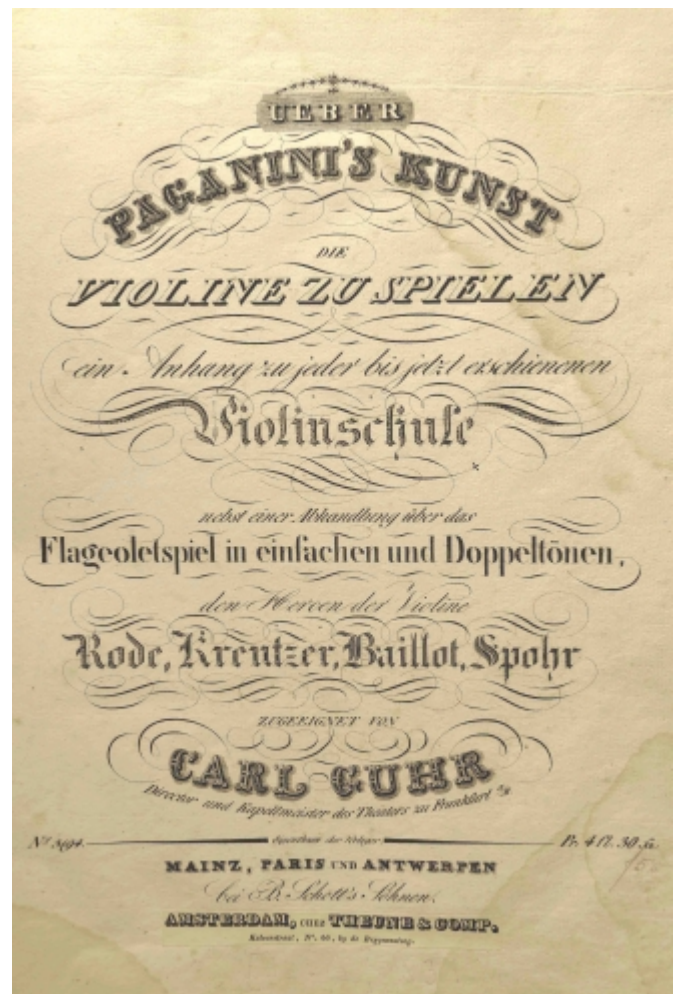 UEBER
PAGANINI'S KUNST
DIE
VIOLINE ZU SPIELEN
ein Anhang zu jeder bis jetzt erschienenen
Violinschule
nebst einer Abhandlung über das
Flageoletspiel in einfachen und Doppeltönen,
den Heroen der Violine
Rode, Kreutzer, Baillot, Spohr
ZUGEEIGNET VON
CARL GUHR
Director und Kapellmeister des Theaters zu Frankfurt a/M
Nº 3694. Eigenthum der Verleger Pr. 4 fl. 30 xr.
MAINZ, PARIS UND ANTWERPEN
bei B. Schott's Söhnen.
AMSTERDAM, CHEZ THEUNE & COMP.
Kalverstraat, Nº